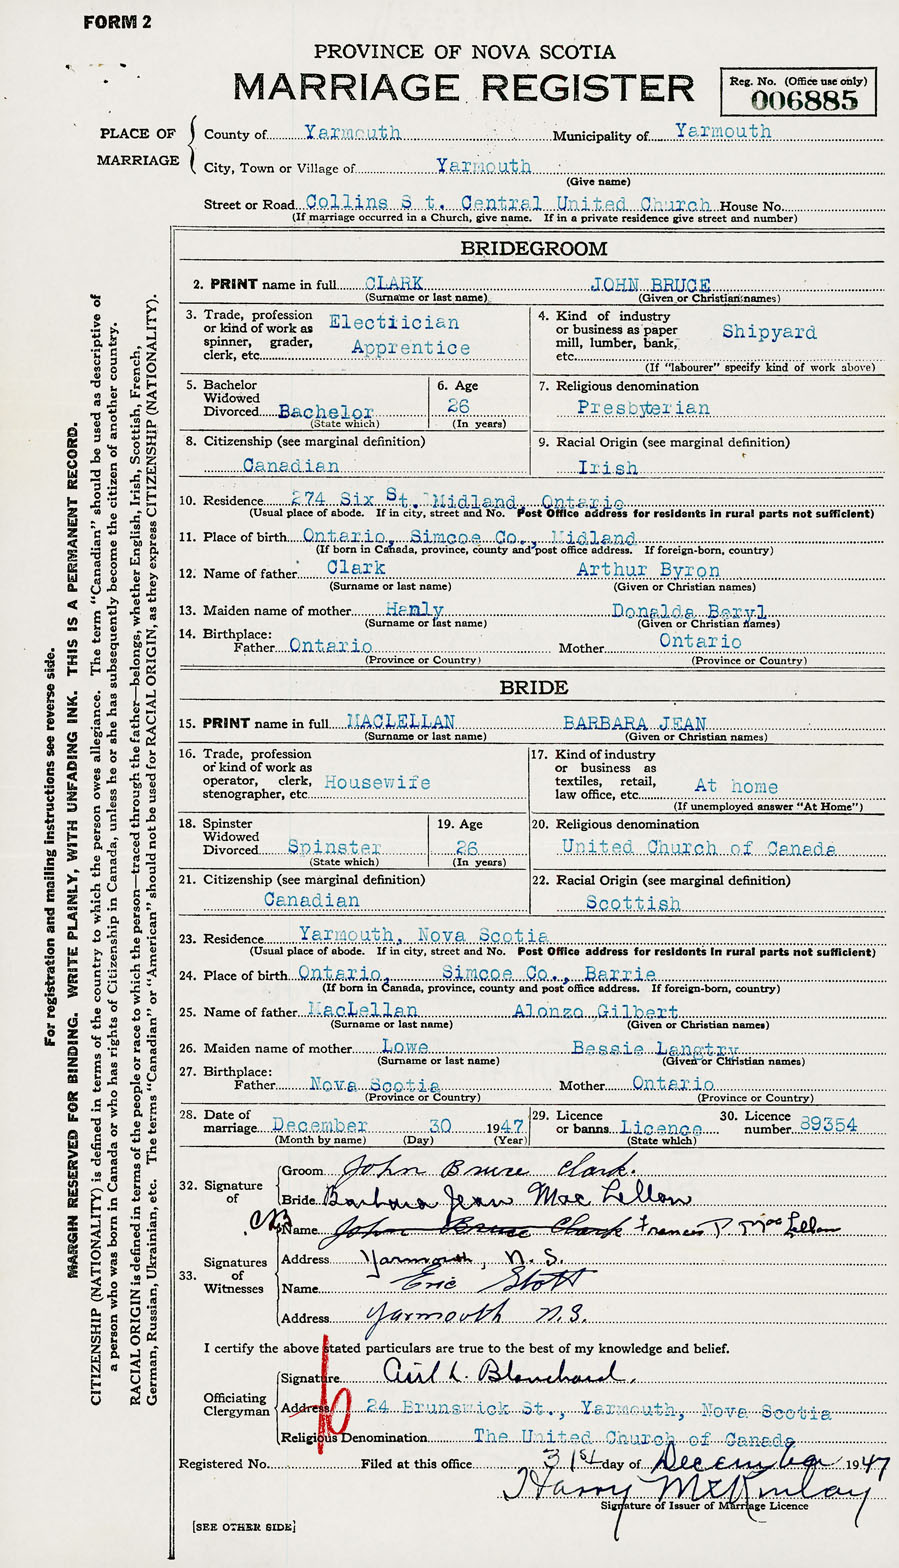 FORM 2
PROVINCE OF NOVA SCOTIA
MARRIAGE REGISTER
Reg. No. (Office use only)
006885
PLACE OF MARRIAGE
County of Yarmouth Municipality of Yarmouth
City, Town or Village of Yarmouth
(Give name)
Street or Road Collins S t. Central United Church House No.
(If marriage occurred in a Church, give name. If in a private residence give street and number)
BRIDEGROOM
2. PRINT name in full CLARK JOHN BRUCE
(Surname or last name) (Given or Christian names)
3. Trade, profession or kind of work as spinner, grader, clerk, etc. Electiician Apprentice
4. Kind of industry or business as paper mill, lumber, bank, etc. Shipyard
(If "labourer" specify kind of work above)
5. Bachelor Widowed Divorced Bachelor
(State which)
6. Age 26
(In years)
7. Religious denomination
Presbyterian
8. Citizenship (see marginal definition)
Canadian
9. Racial Origin (see marginal definition)
Irish
10. Residence 274 Six St. Midland, Ontario
(Usual place of abode. If in city, street and No. Post Office address for residents in rural parts not sufficient)
11. Place of birth Ontario, Simcoe Co., Midland
(If born in Canada, province, county and post office address. If foreign-born, country)
12. Name of father Clark Arthur Byron
(Surname or last name) (Given or Christian names)
13. Maiden name of mother Hanly Donalda Beryl
(Surname or last name) (Given or Christian names)
14. Birthplace:
Father Ontario Mother Ontario
(Province or Country) (Province or Country)
BRIDE
15. PRINT name in full MACLELLAN BARBARA JEAN
(Surname or last name) (Given or Christian names)
16. Trade, profession or kind of work as operator, clerk, stenographer, etc. Housewife
17. Kind of industry or business as textiles, retail, law office, etc. At home
(If unemployed answer "At Home")
18. Spinster Widowed Divorced Spinster
(State which)
19. Age 26
(In years)
20. Religious denomination
United Church of Canada
21. Citizenship (see marginal definition)
Canadian
22. Racial Origin (see marginal definition)
Scottish
23. Residence Yarmouth, Nova Scotia
(Usual place of abode. If in city, street and No. Post Office address for residents in rural parts not sufficient)
24. Place of birth Ontario, Simcoe Co., Barrie
(If born in Canada, province, county and post office address. If foreign-born, country)
25. Name of father MacLellan Alonzo Gilbert
(Surname or last name) (Given or Christian names)
26. Maiden name of mother Lowe Bessie Langtry
(Surname or last name) (Given or Christian names)
27. Birthplace:
Father Nova Scotia Mother Ontario
(Province or Country) (Province or Country)
28. Date of marriage December 30 1947
(Month by name) (Day) (Year)
29. Licence or banns Licence
(State which)
30. Licence number 89354
32. Signature of
Groom John Bruce Clark.
Bride Barbara Jean MacLellan
33. Signatures of Witnesses
Name John Bruce Clark Frances P MacLellan
Address Yarmouth, N.S.
Name Eric Stott
Address Yarmouth N.S.
I certify the above stated particulars are true to the best of my knowledge and belief.
Officiating Clergyman
Signature L. Blanchard.
Address 24 Brunswick St., Yarmouth, Nova Scotia
Religious Denomination The United Church of Canada
Registered No. Filed at this office 31st day of December 1947
Harry McKinlay
Signature of Issuer of Marriage Licence
[SEE OTHER SIDE]
For registration and mailing instructions see reverse side.
MARGIN RESERVED FOR BINDING. WRITE PLAINLY, WITH UNFADING INK. THIS IS A PERMANENT RECORD.
CITIZENSHIP (NATIONALITY) is defined in terms of the country to which the person owes allegiance. The term "Canadian" should be used as descriptive of
a person who was born in Canada or who has rights of Citizenship in Canada, unless he or she has subsequently become the citizen of another country.
RACIAL ORIGIN is defined in terms of the people or race to which the person—traced through the father—belongs, whether English, Irish, Scottish, French,
German, Russian, Ukrainian, etc. The terms "Canadian" or "American" should not be used for RACIAL ORIGIN, as they express CITIZENSHIP (NATIONALITY).